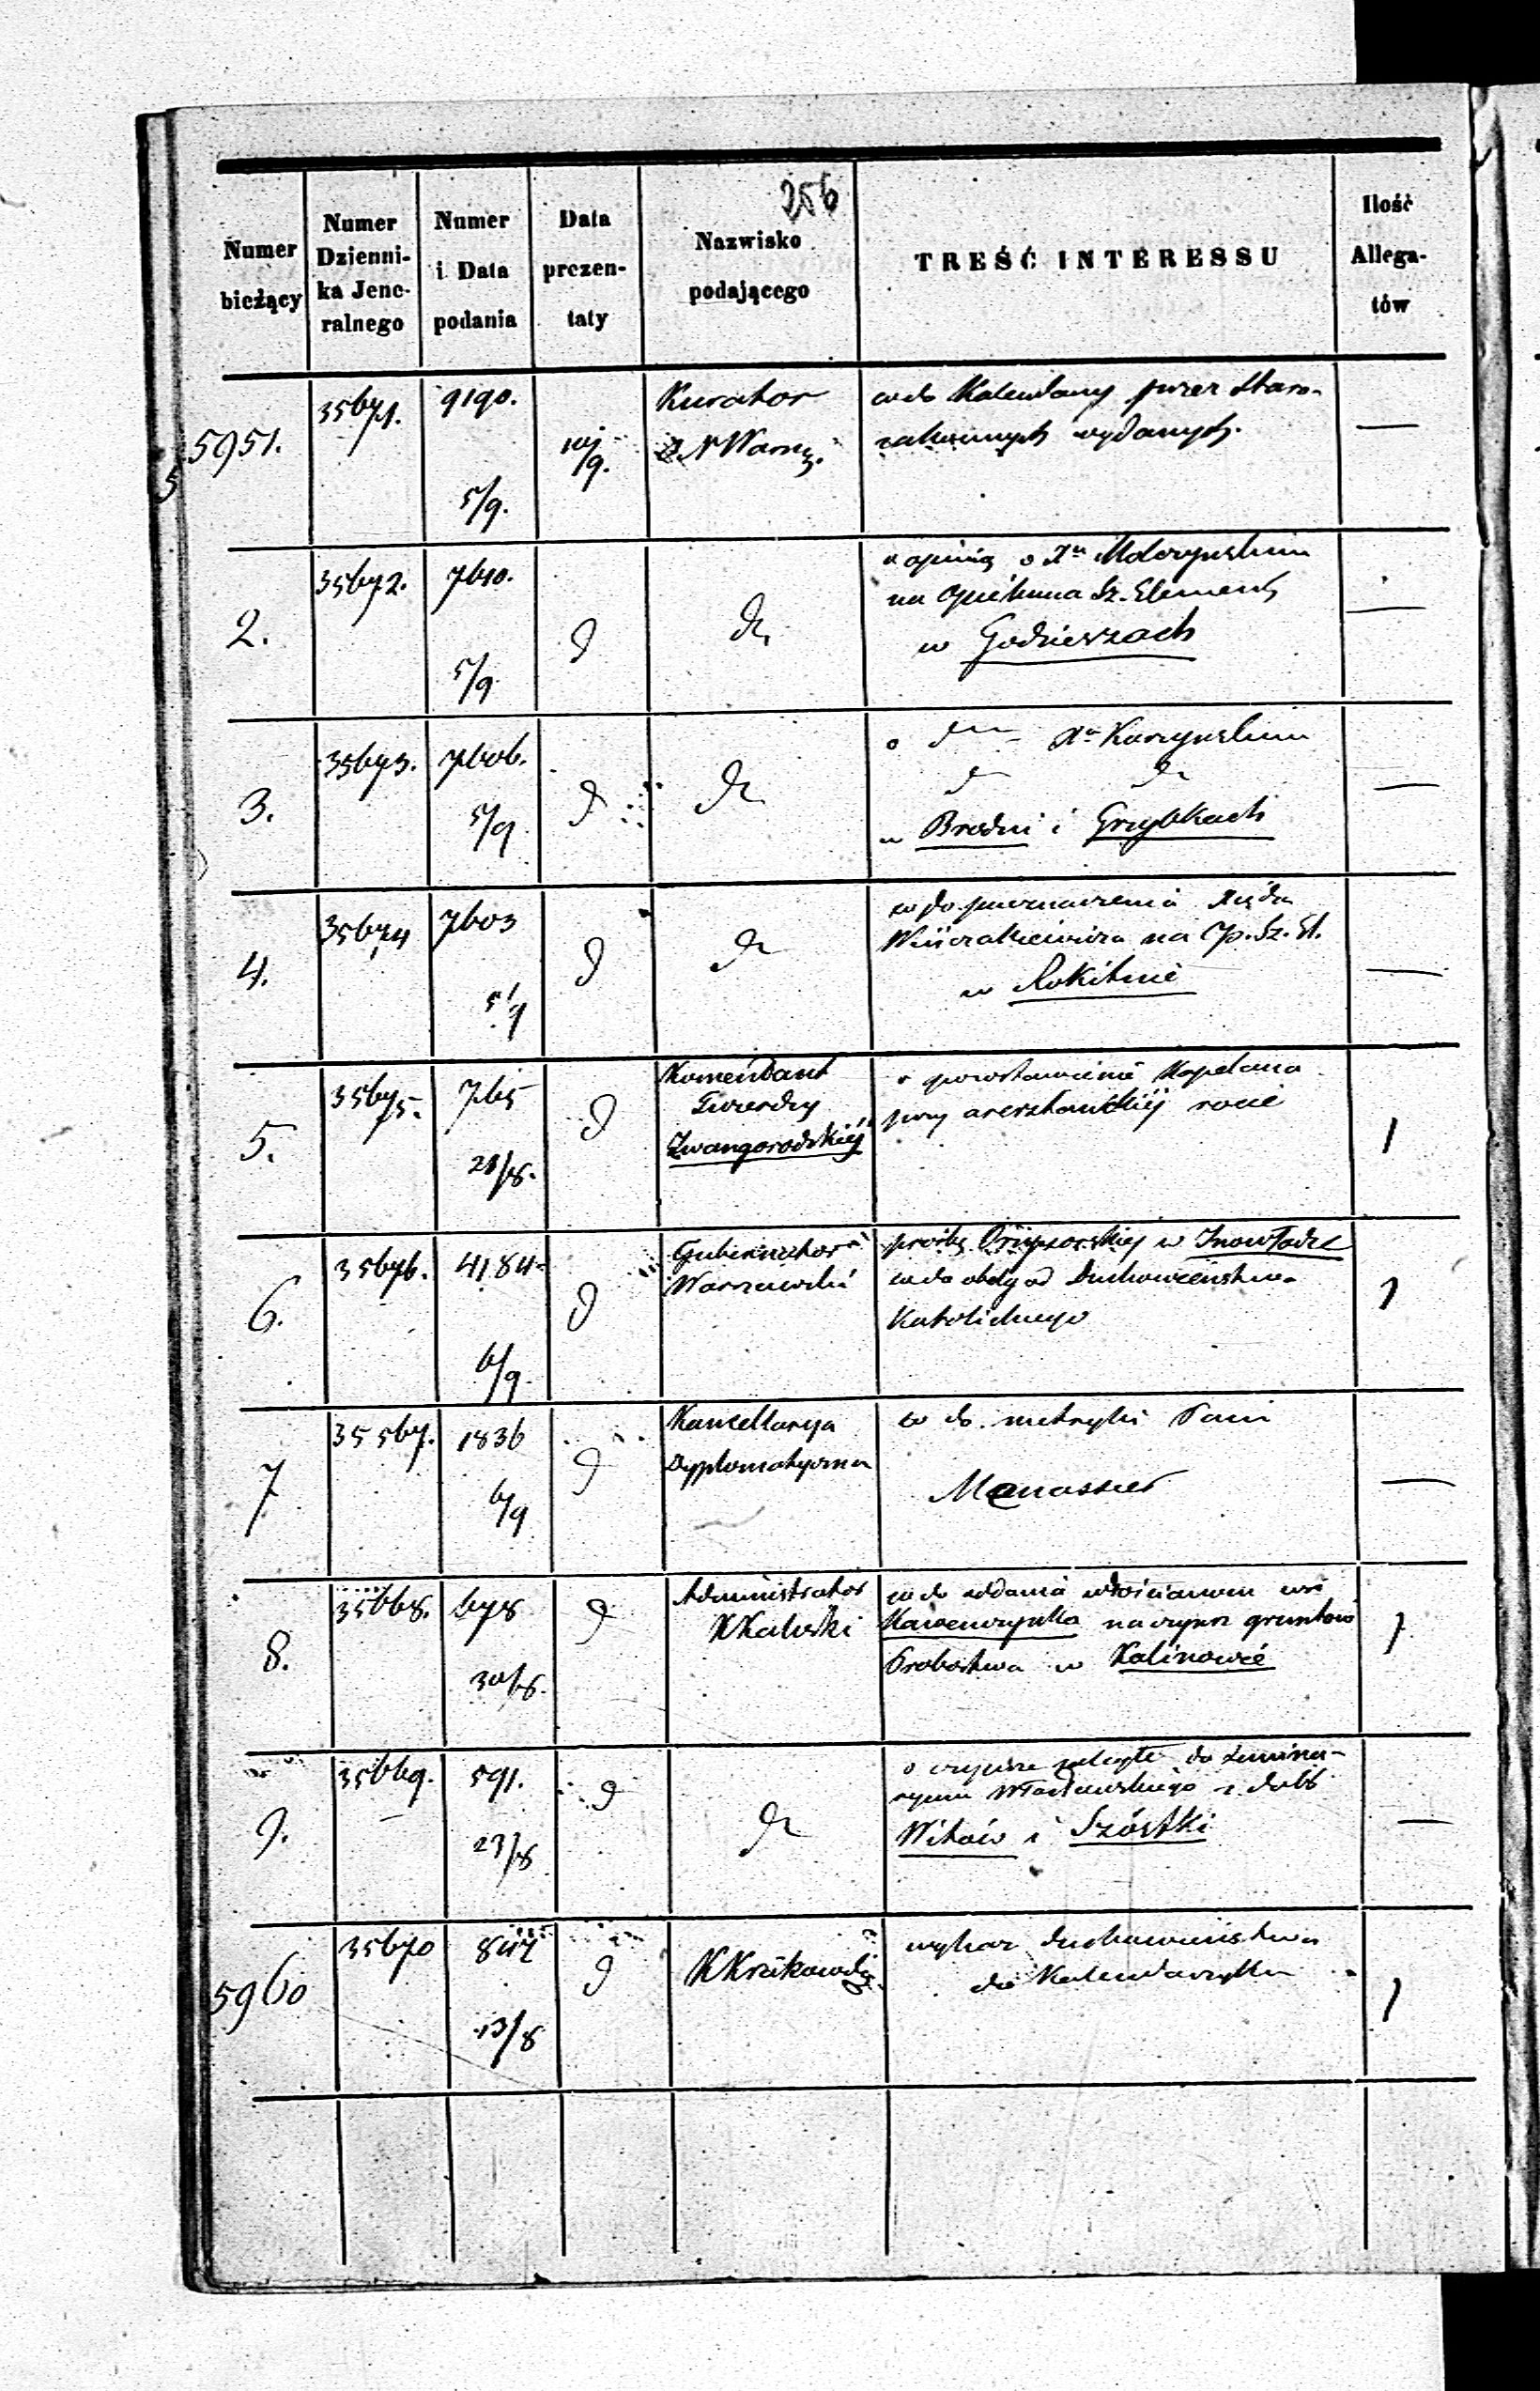 256
Numer bieżący
Numer Dzienni-ka Jene-ralnego
Numer i Data podania
Data prezen-taty
Nazwisko podającego
TREŚĆ INTERESSU
Ilość Allega-tów
5951. 35671. 9190. 5/9. 10/9. Kurator
O. N Warsz. codo Kalendarzy przez Staro-
zakonnych wydanych. —
2. 35672. 7610. 5/9 d d
o opinią o Xu
na Opiekuna Sz. Element
w Godzieszach —
3. 35673. 7606. 5/9 d d
o d Xu Karczynskim
d d
w Brodni i Grzybkach —
4. 35674 7603 5/9 d d
co do przeznaczenia Xiędza
na Op. Sz. El.
w Rokitnie —
5. 35675. 765 28/8. d
Komendant
Twierdzy
Iwangorodskiéj
o pozostawienie Kapelana
przy aresztantskiéj rocie 1
6. 35676. 4184 6/9 d
Gubernator
Warszawski
prośbę w Inowłodzu
codo od Duchowieństwa
Katolickiego 1
7. 35567. 1836 6/9 d
Kancellarya
Dyplomatyczna
co do metryki Pani
Manassier —
8. 35668. 678 30/8. d
Administrator
KKaliski
codo oddania włościanom wsi
Kawenczynka na czynsz gruntów
Probostwa w Kalinowie 1
9. 35669. 591. 23/8 d d
o czynsze zaległe do Semina-
ryum Włocławskiego z dóbr
Witów i Szóstki —
5960 35670 847 13/8 d KKrakowski
wykaz duchowieństwa
do Kalendarzyka 1